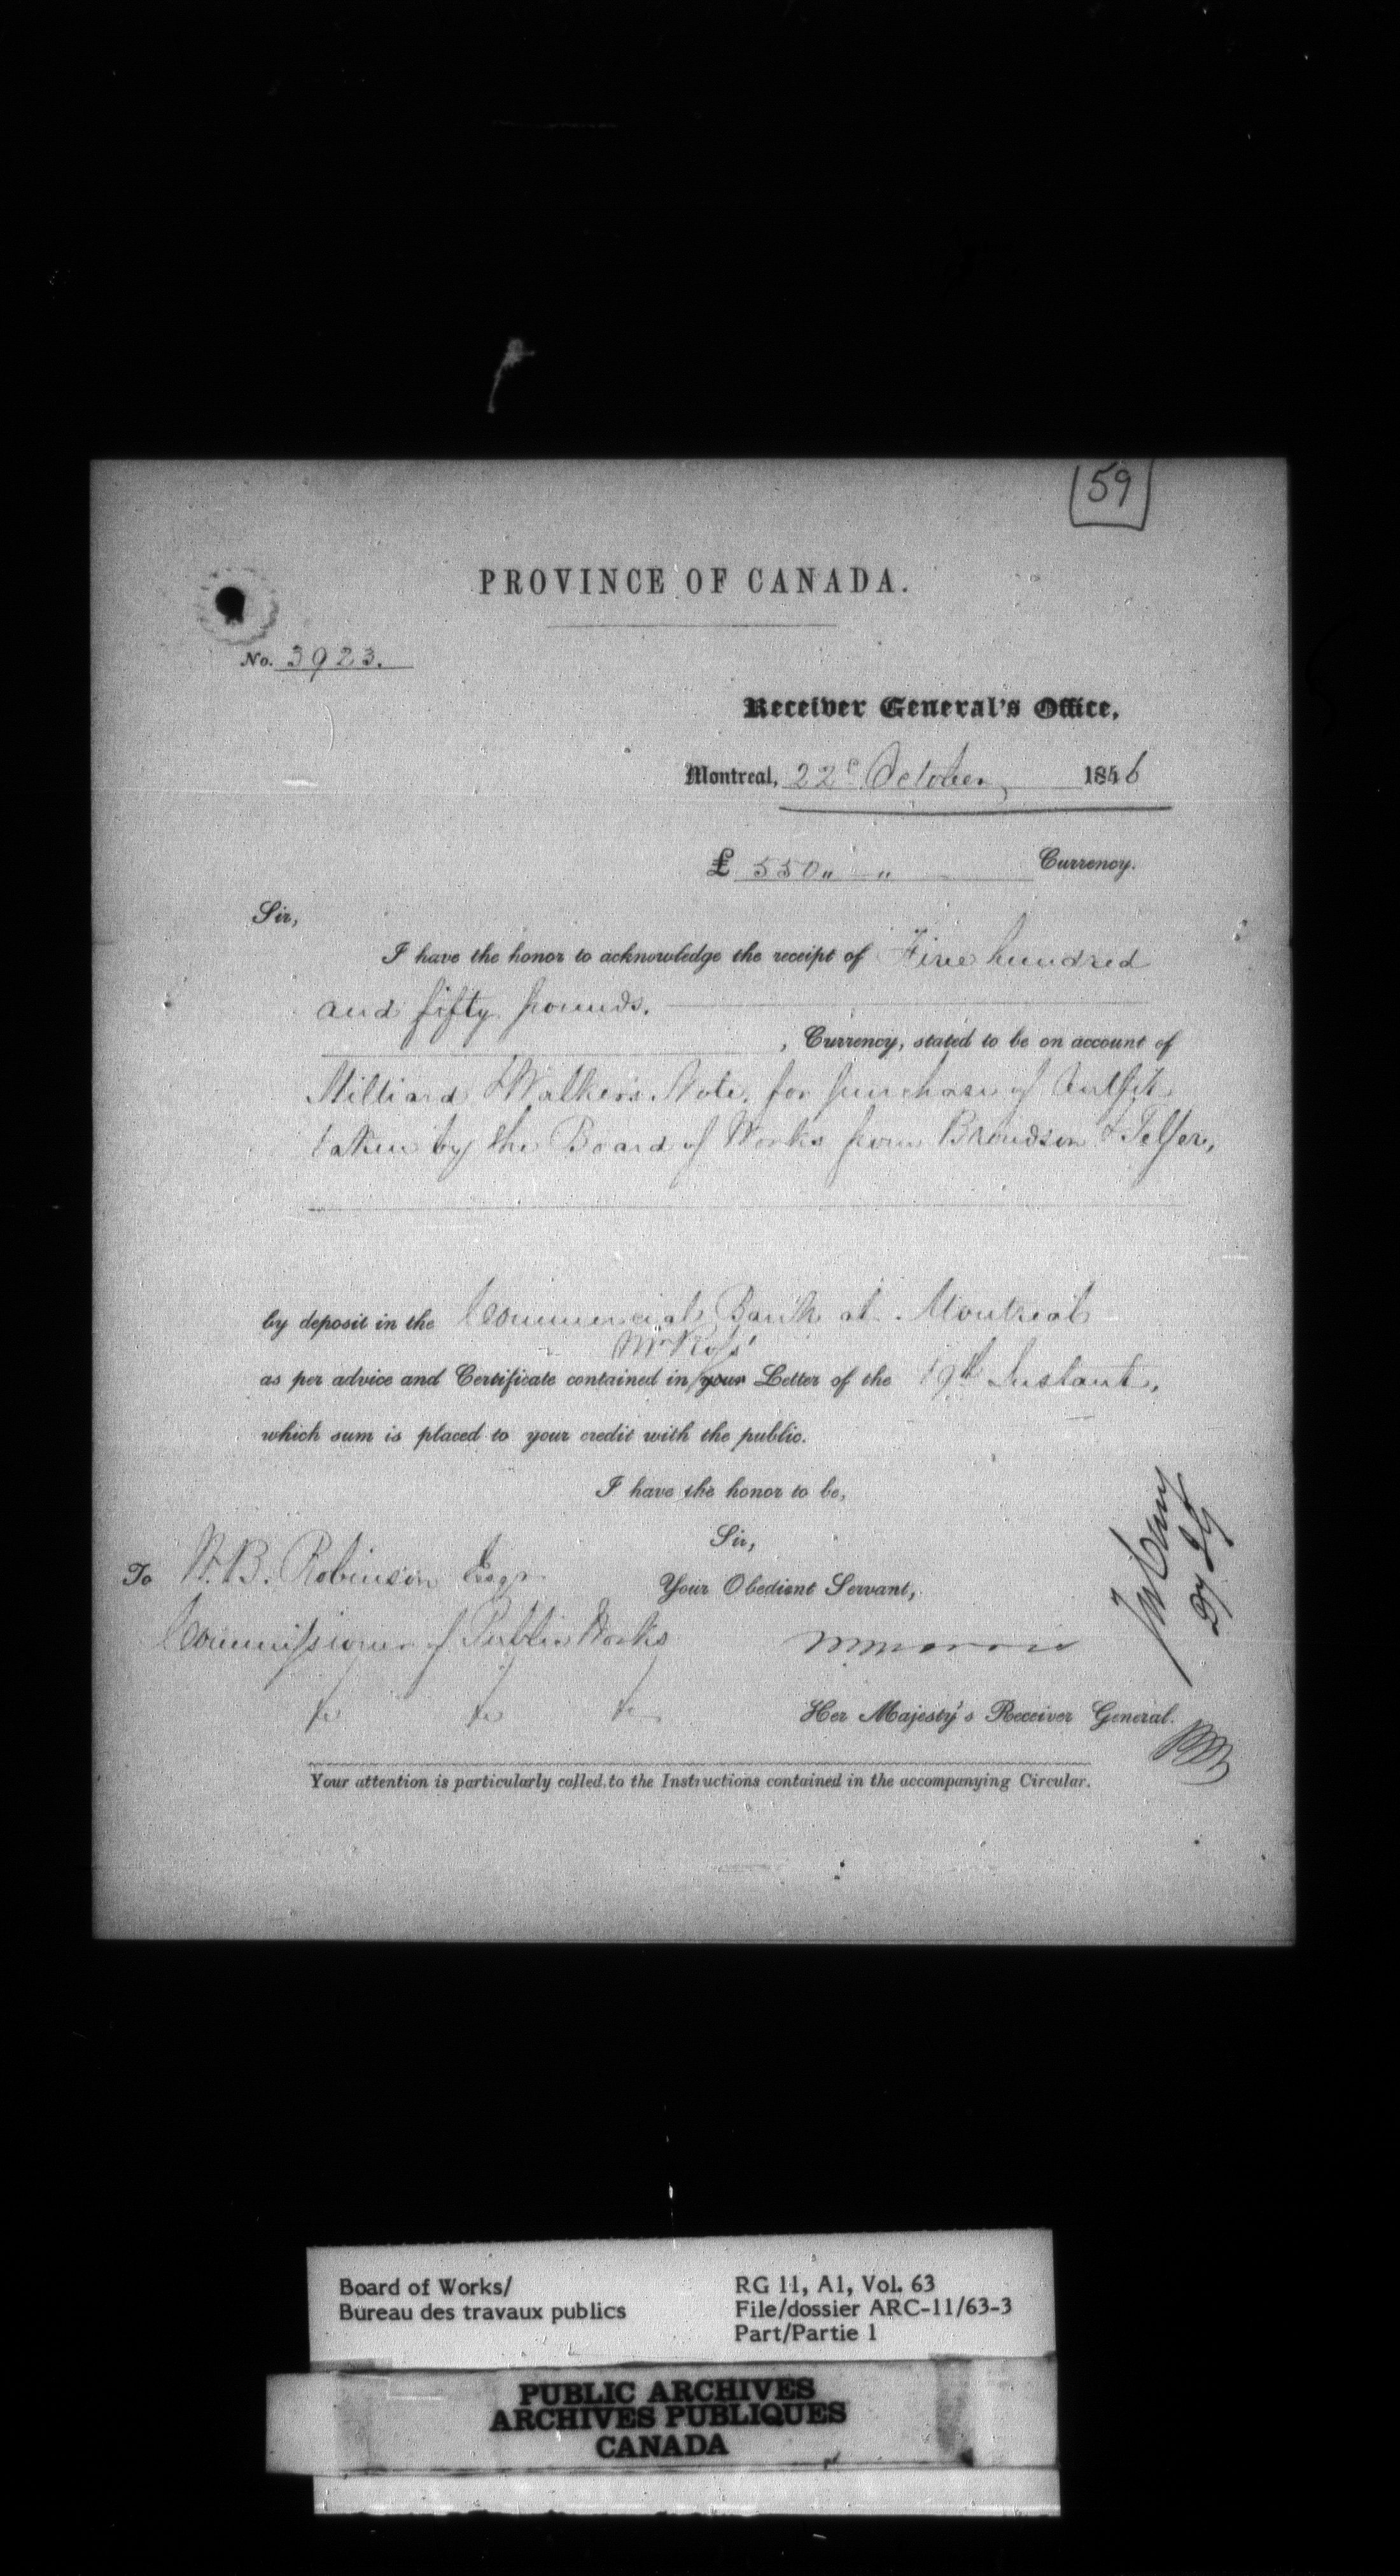 59
PROVINCE OF CANADA.
No. 3923.
Receiver General's Office,
Montreal, 22d October, 1846
£ 550 " " Currency.
Sir,
I have the honor to acknowledge the receipt of Five hundred
and fifty pounds.
, Currency, stated to be on account of
Milliard & Walker's Note, for purchase of Outfit
taken by the Board of Works from Brondsen & Telfer,
by deposit in the Commercial Bank at Montreal
Mr Ross'
as per advice and Certificate contained in your Letter of the 19th Instant,
which sum is placed to your credit with the public.
I have the honor to be,
Sir,
To W. B. Robinson Esqr
Your Obedient Servant,
Commissioner of Public Works
&c &c &c
Her Majesty's Receiver General.
Your attention is particularly called to the Instructions contained in the accompanying Circular.
Board of Works/
Bureau des travaux publics
RG 11, A1, Vol. 63
File/dossier ARC-11/63-3
Part/Partie 1
PUBLIC ARCHIVES
ARCHIVES PUBLIQUES
CANADA